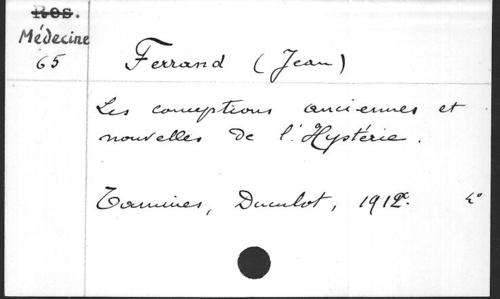 Res.
Médecine
65
Ferrand (Jean)
Les conceptions anciennes et
nouvelles de l'Hystérie.
Tamines, Duculot, 1912. 4°